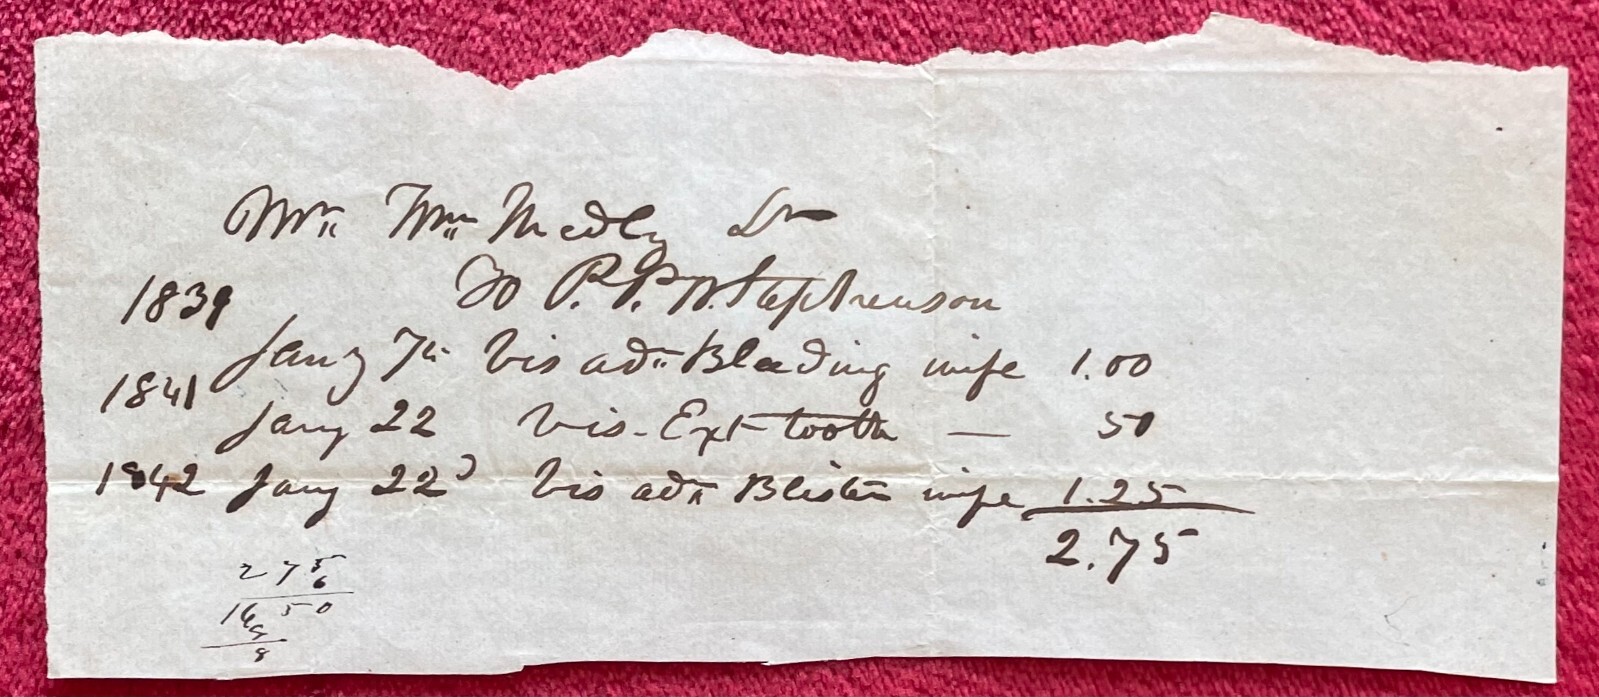 Mr. Wm. Medly Dr
To P. P. W. Stephenson
1839
Jany 7th Vis ad. Bleeding wife 1.00
1841
Jany 22 Vis - Ext tooth — 50
1842 Jany 22d Vis ad. Blister wife 1.25
2.75
275
6
1650
8